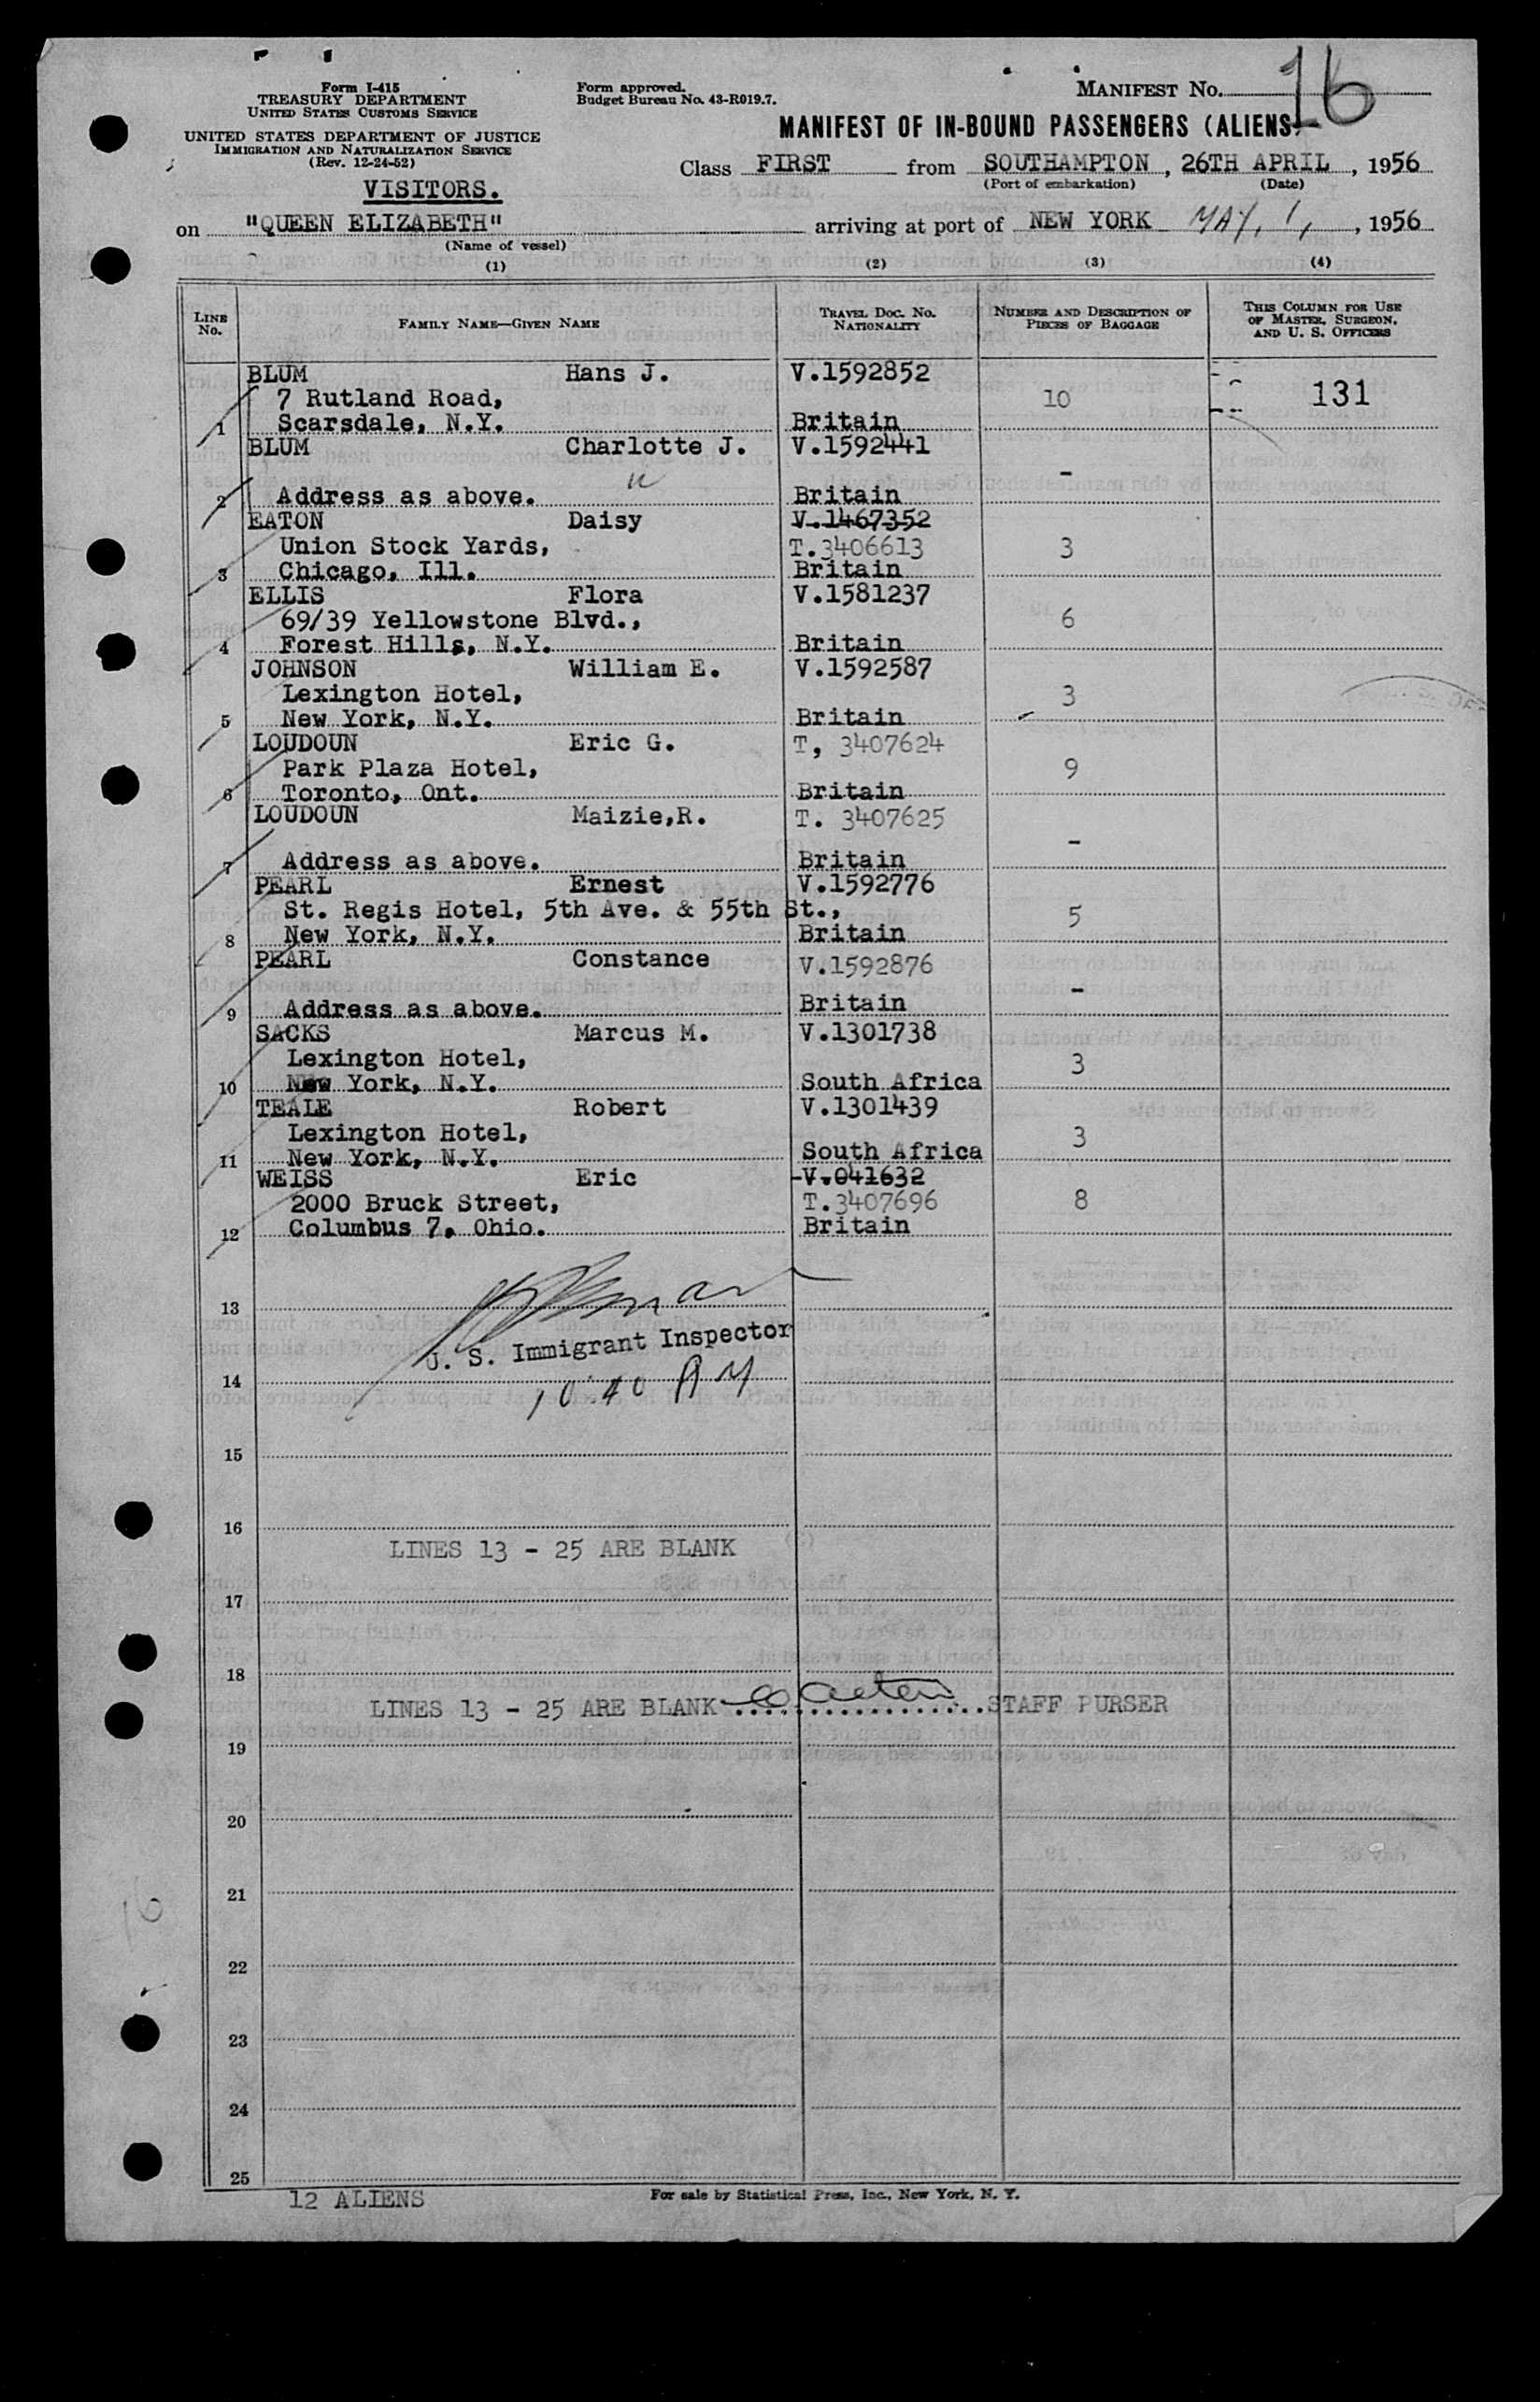 Form I-415
TREASURY DEPARTMENT
UNITED STATES CUSTOMS SERVICE
UNITED STATES DEPARTMENT OF JUSTICE
IMMIGRATION AND NATURALIZATION SERVICE
(Rev. 12-24-52)
VISITORS.
Form approved.
Budget Bureau No. 43-R019.7.
MANIFEST NO. 16
MANIFEST OF IN-BOUND PASSENGERS (ALIENS)
Class FIRST from SOUTHAMPTON, 26TH APRIL, 1956
(Port of embarkation) (Date)
on "QUEEN ELIZABETH" arriving at port of NEW YORK MAY, 1, , 1956
(Name of vessel)
(1) (2) (3) (4)
LINE NO. FAMILY NAME—GIVEN NAME TRAVEL DOC. NO. NATIONALITY NUMBER AND DESCRIPTION OF PIECES OF BAGGAGE THIS COLUMN FOR USE OF MASTER, SURGEON, AND U. S. OFFICERS
BLUM Hans J. V.1592852
7 Rutland Road, 10 131
1 Scarsdale, N.Y. Britain
BLUM Charlotte J. V.1592441
-
2 Address as above. Britain
EATON Daisy V.1467352
Union Stock Yards, T.3406613 3
3 Chicago, Ill. Britain
ELLIS Flora V.1581237
69/39 Yellowstone Blvd., 6
4 Forest Hills, N.Y. Britain
JOHNSON William E. V.1592587
Lexington Hotel, 3
5 New York, N.Y. Britain
LOUDOUN Eric G. T, 3407624
Park Plaza Hotel, 9
6 Toronto, Ont. Britain
LOUDOUN Maizie,R. T. 3407625
-
7 Address as above. Britain
PEARL Ernest V.1592776
St. Regis Hotel, 5th Ave. & 55th St., 5
8 New York, N.Y. Britain
PEARL Constance V.1592876
-
9 Address as above. Britain
SACKS Marcus M. V.1301738
Lexington Hotel, 3
10 New York, N.Y. South Africa
TEALE Robert V.1301439
Lexington Hotel, 3
11 New York, N.Y. South Africa
WEISS Eric V.041632
2000 Bruck Street, T.3407696 8
12 Columbus 7, Ohio. Britain
13
U. S. Immigrant Inspector
14
10:40 AM
15
16
LINES 13 - 25 ARE BLANK
17
18
LINES 13 - 25 ARE BLANK STAFF PURSER
19
20
21
22
23
24
25
12 ALIENS
For sale by Statistical Press, Inc., New York, N. Y.
16